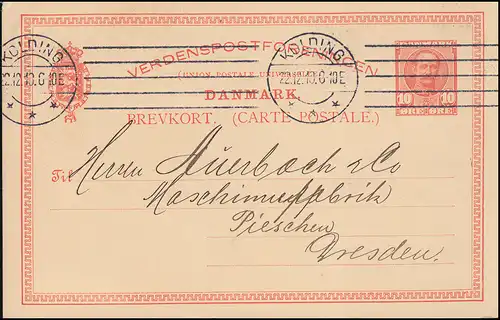 VERDENSPOSTFORENINGEN
(UNION POSTALE UNIVERSELLE)
DANMARK.
BREVKORT. (CARTE POSTALE.)
KOLDING
22.12.10.6-10E
KOLDING
22.12.10.6-10E
10 10
Til
Herren Auerbach & Co
Maschinenfabrik
Pieschen
Dresden.